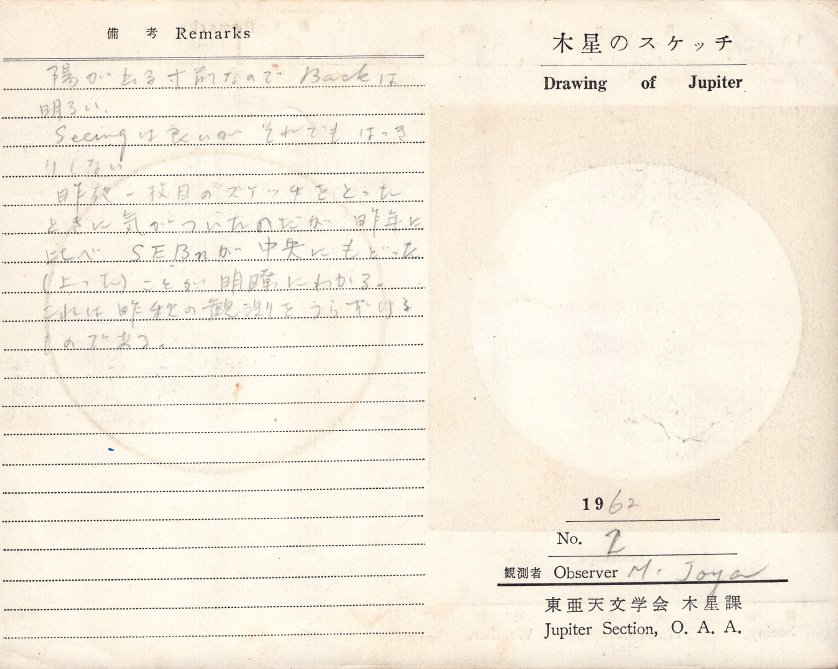 備考 Remarks
陽が上る寸前なので Backは
明るい.
Seeingは良いが それでも はっき
りしない
昨夜一枚目のスケッチをとった
ときに気がついたのだが 昨年に
比べ SEBnが 中央にもどった
(上った)ことが明瞭にわかる。
これは昨秋の観測をうらずける
ものである。
木星のスケッチ
Drawing of Jupiter
1962
No. 2
観測者 Observer M. Joya
東亜天文学会 木星課
Jupiter Section, O. A. A.